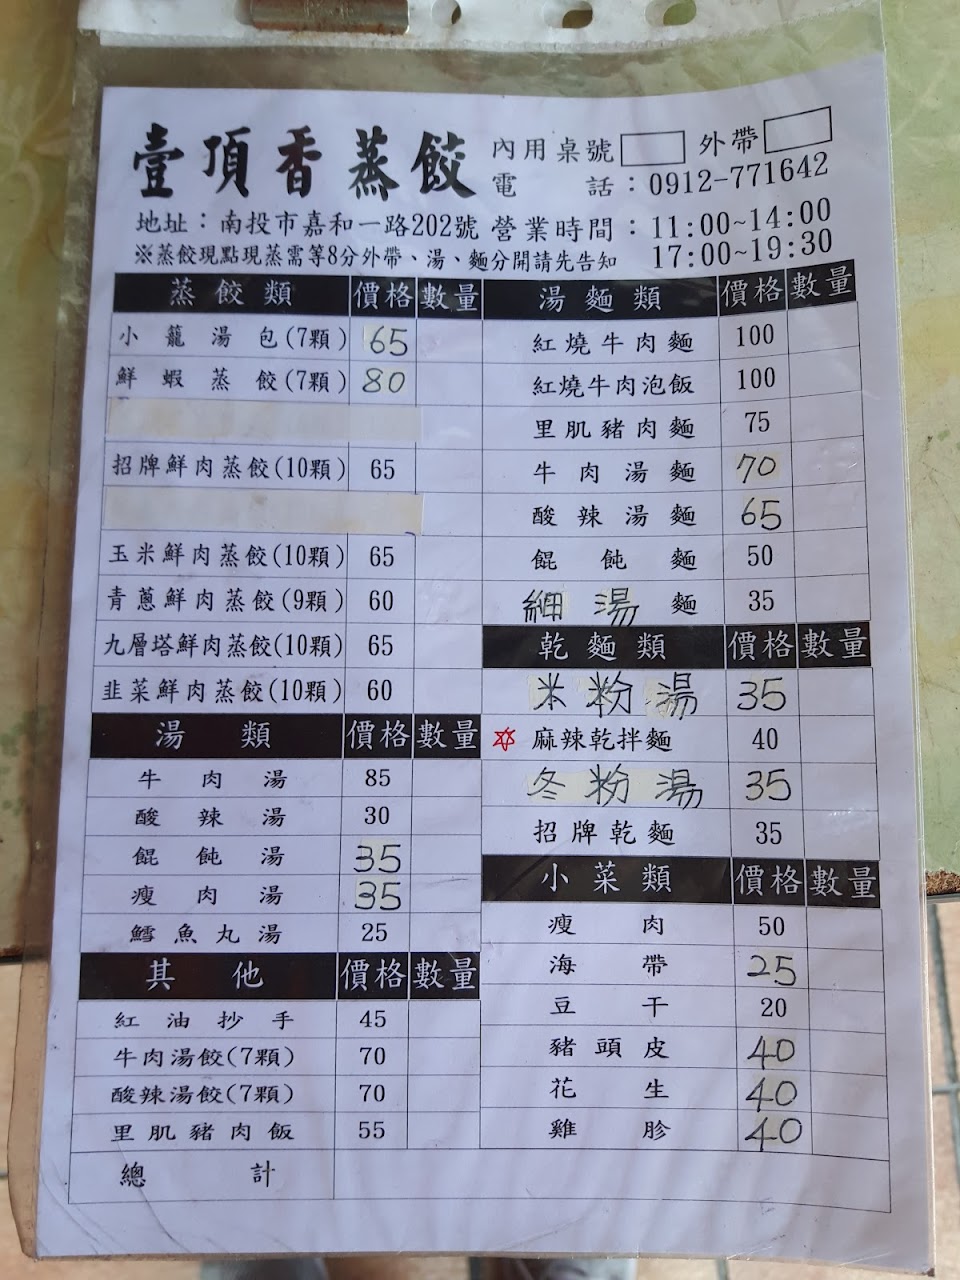 壹頂香蒸餃
內用桌號 外帶
電話：0912-771642
地址：南投市嘉和一路202號 營業時間：11:00~14:00
※蒸餃現點現蒸需等8分外帶、湯、麵分開請先告知 17:00~19:30
蒸餃類 價格 數量
小籠湯包(7顆) 65
鮮蝦蒸餃(7顆) 80
招牌鮮肉蒸餃(10顆) 65
玉米鮮肉蒸餃(10顆) 65
青蔥鮮肉蒸餃(9顆) 60
九層塔鮮肉蒸餃(10顆) 65
韭菜鮮肉蒸餃(10顆) 60
湯類 價格 數量
牛肉湯 85
酸辣湯 30
餛飩湯 35
瘦肉湯 35
鱈魚丸湯 25
其他 價格 數量
紅油抄手 45
牛肉湯餃(7顆) 70
酸辣湯餃(7顆) 70
里肌豬肉飯 55
總計
湯麵類 價格 數量
紅燒牛肉麵 100
紅燒牛肉泡飯 100
里肌豬肉麵 75
牛肉湯麵 70
酸辣湯麵 65
餛飩麵 50
細湯麵 35
乾麵類 價格 數量
米粉湯 35
麻辣乾拌麵 40
冬粉湯 35
招牌乾麵 35
小菜類 價格 數量
瘦肉 50
海帶 25
豆干 20
豬頭皮 40
花生 40
雞胗 40